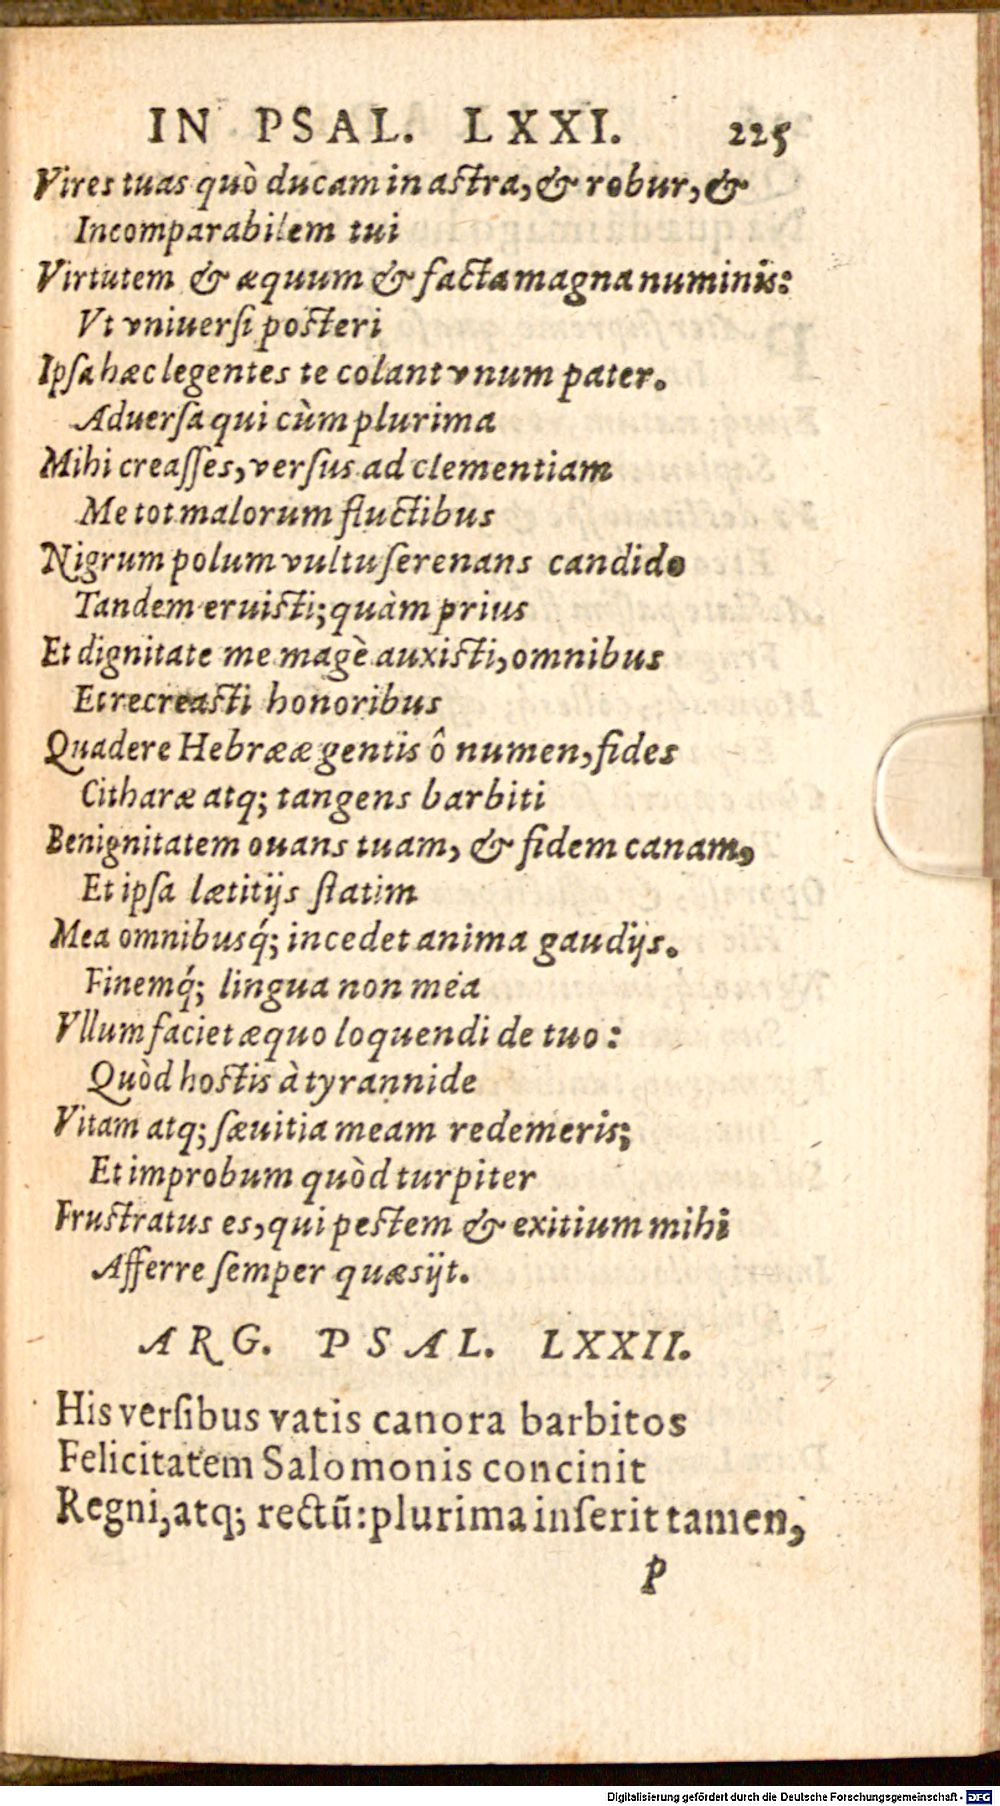 IN PSAL. LXXI. 225
Vires tuas quò ducam in astra, & robur, &
Incomparabilem tui
Virtutem & æquum & facta magna numinis:
Vt vniuersi posteri
Ipsa hæc legentes te colant vnum pater.
Aduersa qui cùm plurima
Mihi creasses, versus ad clementiam
Me tot malorum fluctibus
Nigrum polum vultu serenans candido
Tandem eruisti; quàm prius
Et dignitate me magè auxisti, omnibus
Et recreasti honoribus
Quadere Hebrææ gentis ô numen, fides
Citharæ atq; tangens barbiti
Benignitatem ouans tuam, & fidem canam,
Et ipsa lætitijs statim
Mea omnibusq́; incedet anima gaudijs.
Finemq́; lingua non mea
Vllum faciet æquo loquendi de tuo:
Quòd hostis à tyrannide
Vitam atq; sæuitia meam redemeris;
Et improbum quòd turpiter
Frustratus es, qui pestem & exitium mihi
Afferre semper quæsijt.
ARG. PSAL. LXXII.
His versibus vatis canora barbitos
Felicitatem Salomonis concinit
Regni, atq; rectū: plurima inserit tamen,
P
Digitalisierung gefördert durch die Deutsche Forschungsgemeinschaft - DFG